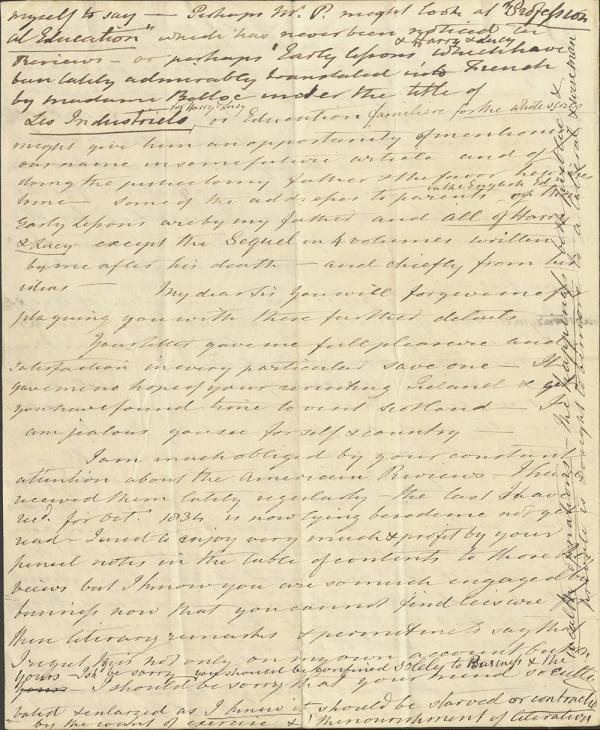 myself to say — Perhaps Mr. P. might look at "Profession
al Education" which has never been noticed in
& Harry & Lucy
Reviews — or perhaps "Early Lessons" which have
been lately admirably translated into French
by madame Belloc under the title of
for Harry & Lucy
Les Industriels, or Education familiere for the whole series
might give him an opportunity of mentioning
our name in some future article and of
doing the justice to my father & the favor
in the English Edn
some — Some of the addresses to parents of the
Early Lessons are by my father and all of Harry
& Lucy except the Sequel in 4 volumes written
by me after his death — and chiefly from his
ideas — My dear Sir you will forgive me for
plaguing you with these further details
Your letter gave me full pleasure and
satisfaction in every particular save one — It
gave me no hope of your revisiting Ireland &
you have found time to visit Scotland — I
am jealous you see for self & country —
I am much obliged by your constant
attention about the American Reviews — I have
received them lately regularly — the last I have
recd. for Oct. 1834 is now lying beside me not yet
read — I used to enjoy very much & profit by your
pencil notes in the table of contents to those Re
views but I know you are so much engaged by
business now that you cannot find leisure for
these literary remarks & permit me to say that
I regret this not only on my own account but on
yours — I shd be sorry you should be confined solely to Business & the
yours — I should be sorry that your mind so culti
vated & enlarged as I know it should be starved or contracted
by the want of exercise & the nourishment of literature